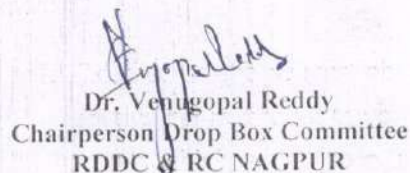 Dr. Venugopal Reddy
Chairperson Drop Box Committee
RDDC & RC NAGPUR